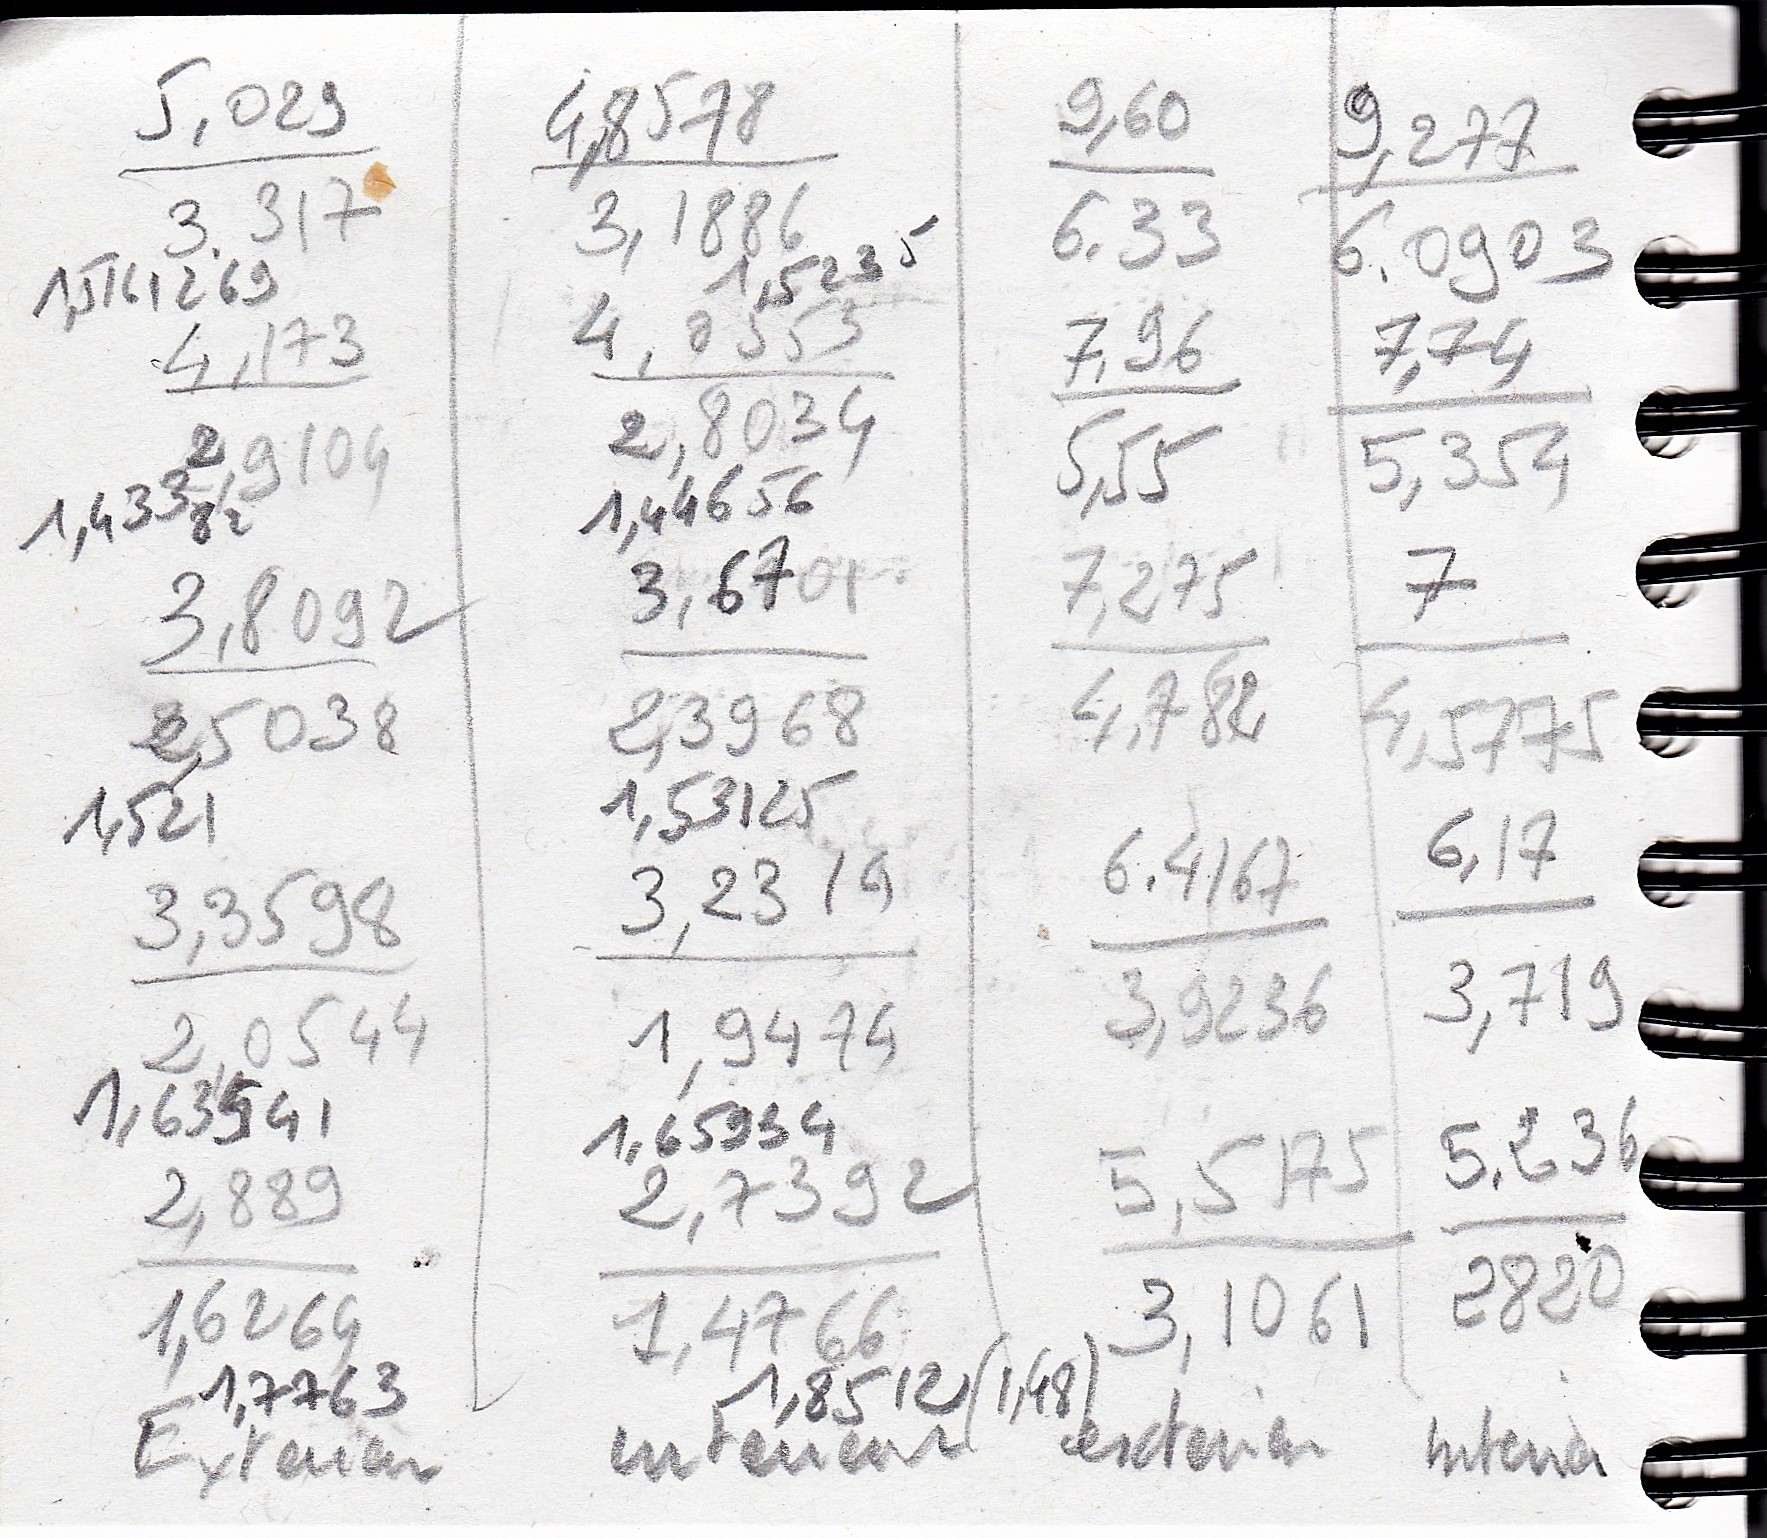 5,029
3.317
1,5161269
4,173
2,9104
1,43382
3,8092
2,5038
1,521
3,3598
2,0544
2,889
1,6264
1,7763
Exterieur
4,8578
3,1886
1,5235
4,0553
2,8034
1,44656
3,6701
2,3968
1,53125
3,2314
1,9474
1,65934
2,7392
1,4766
1,8512 (1,48)
interieur
9,60
6.33
7,96
5,55
7,275
4,782
6.4167
3,9236
5,5175
3,1061
exterieur
9,277
6.0903
7,74
5,354
7
4,5775
6,17
3,719
5.236
2820